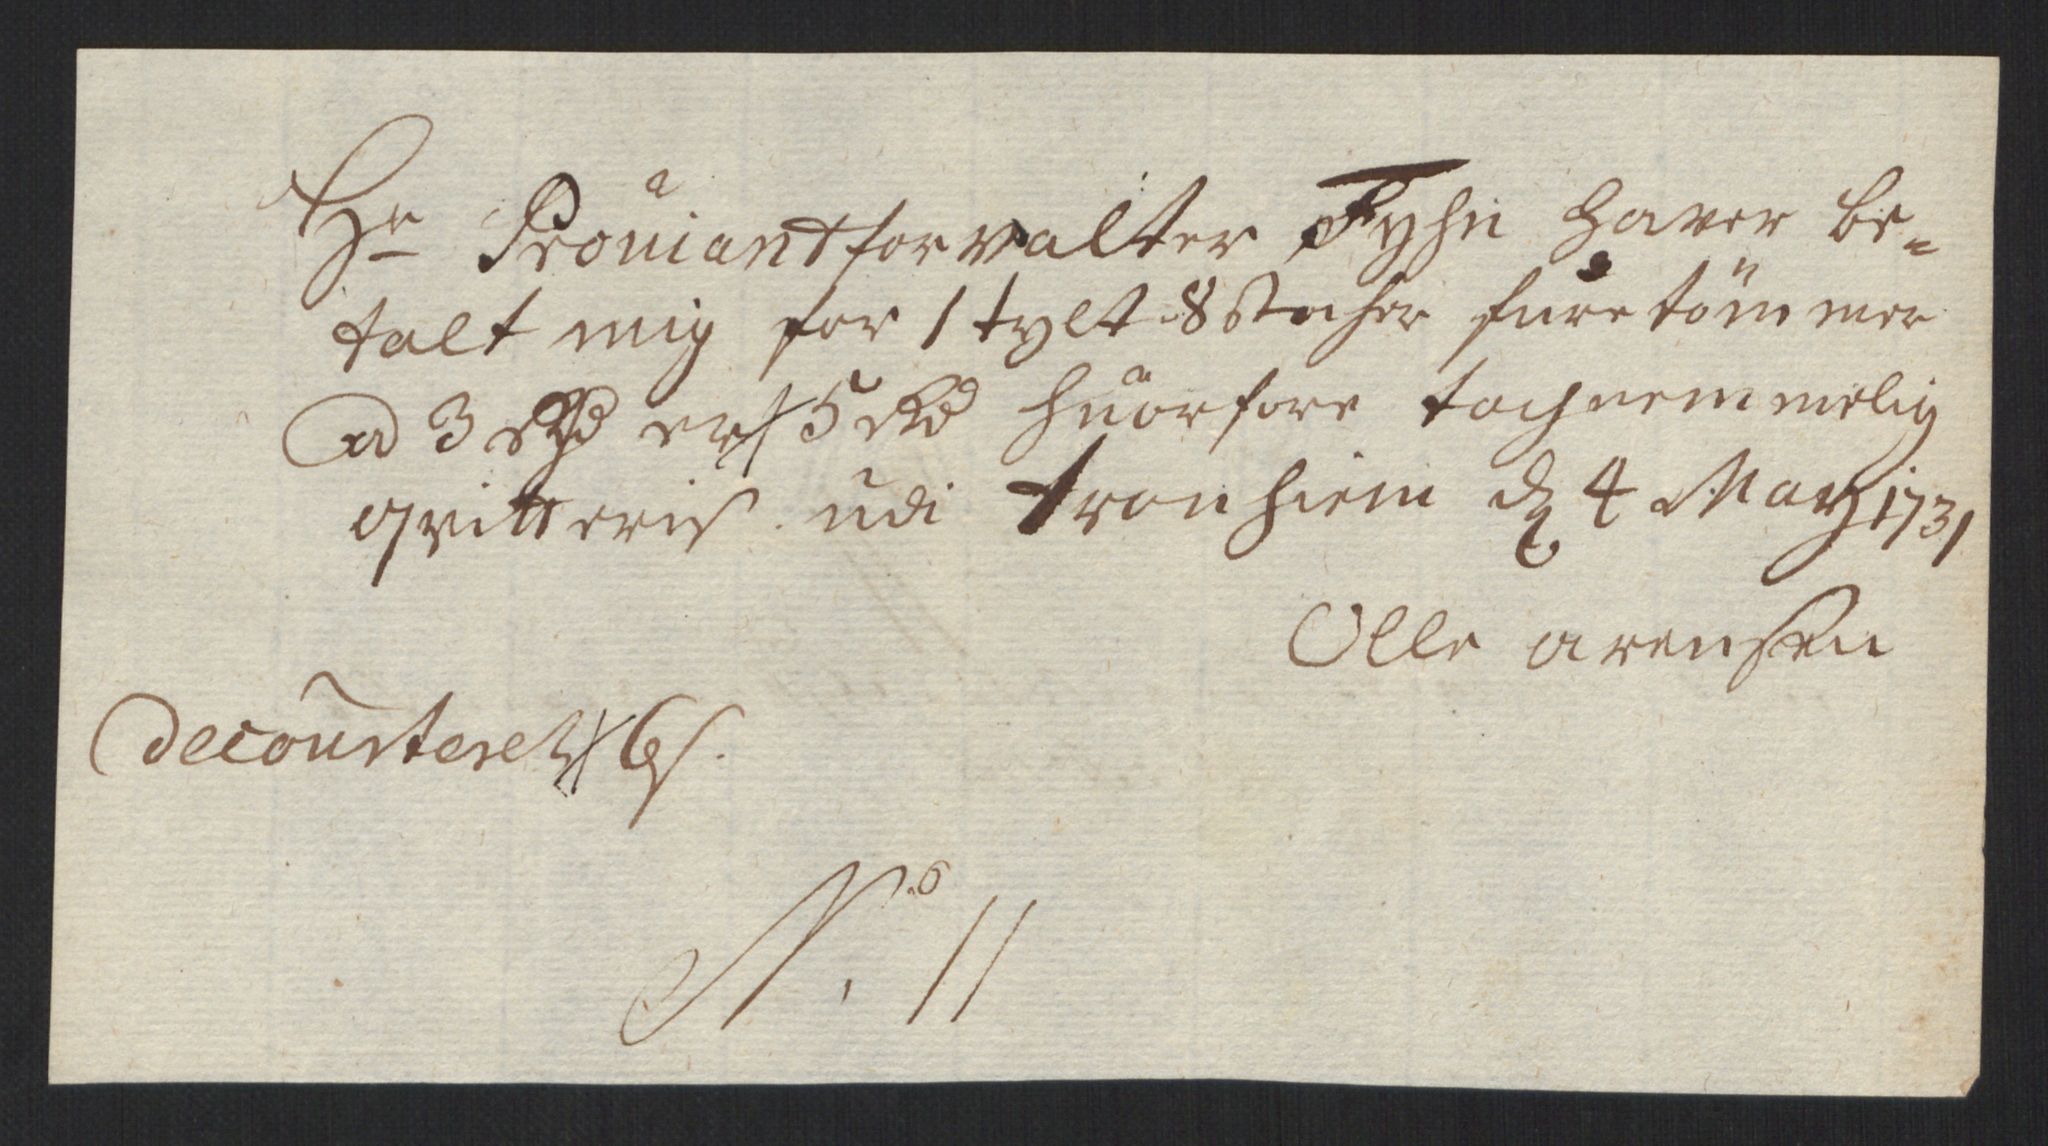 Hr Proviantforvalter Fyhn haver be-
talt mig for 1 tylt 8 stocher fure tömmer
a 3 Rd er 5 Rd huorfore tachnemmelig
qvitteris udi tronhiem d 4 Marz 1731
Olle arensen
decourteret 6 s.
No. 11